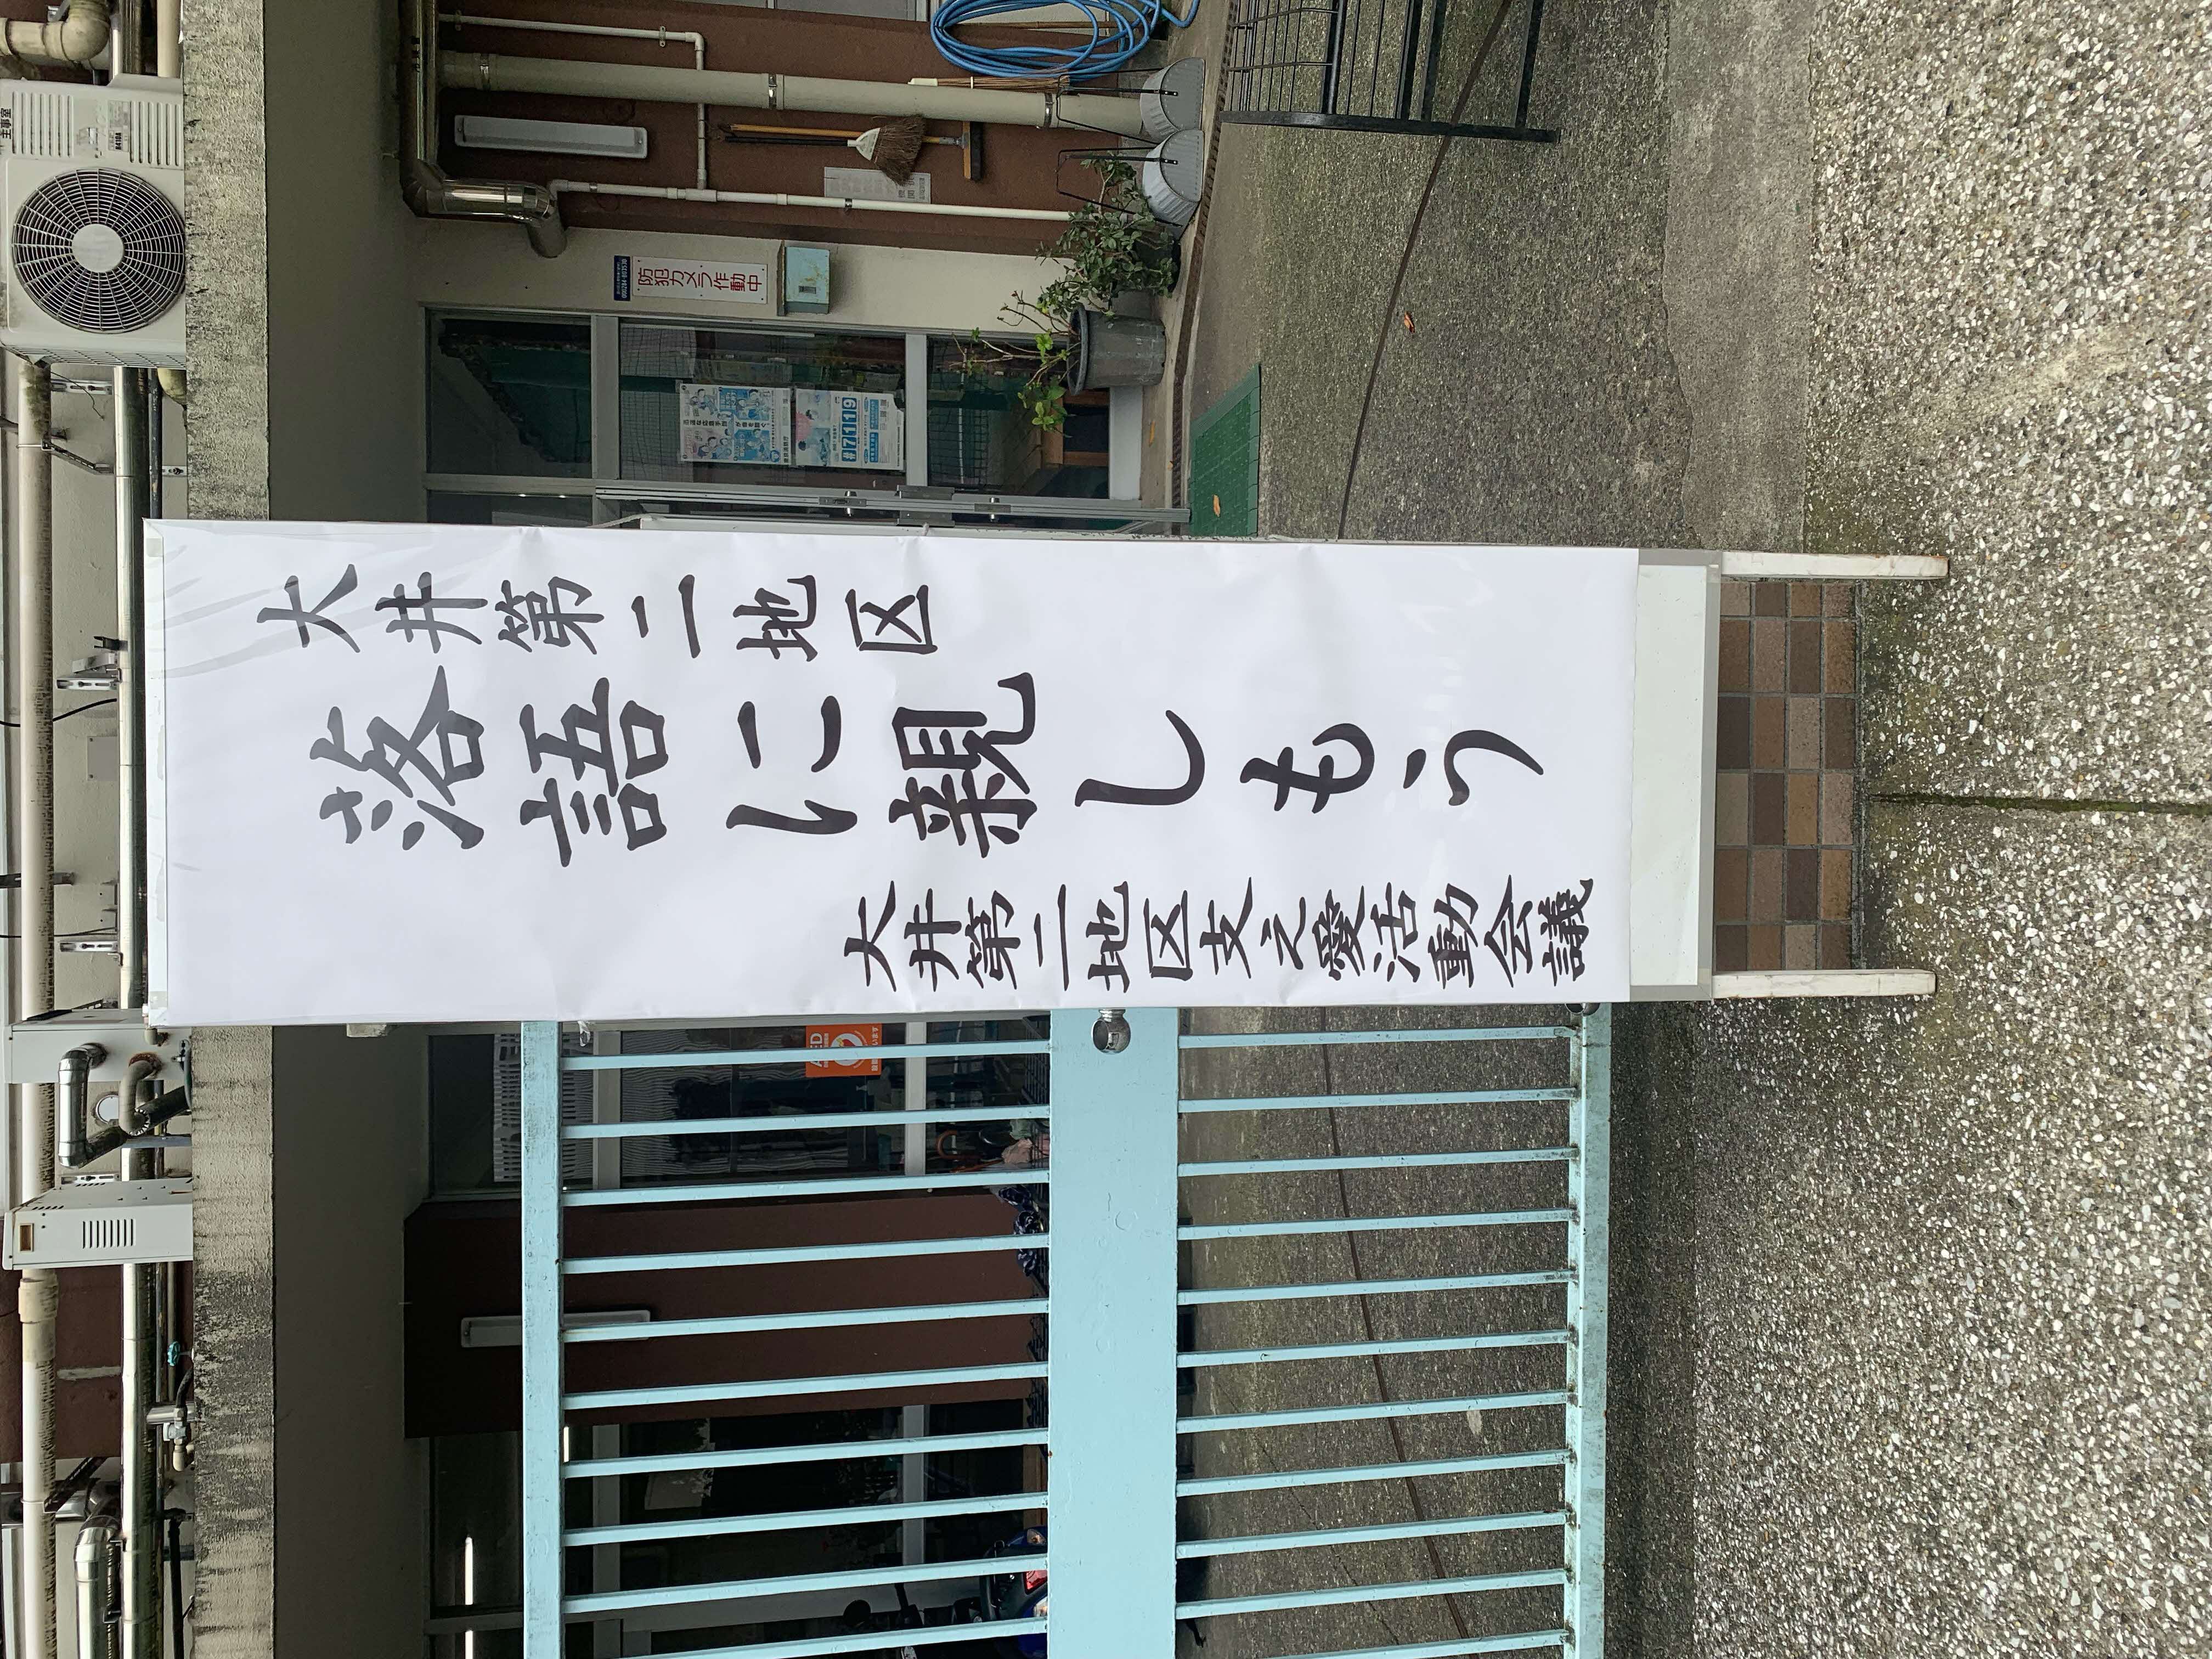 大井第二地区
落語に親しもう
大井第二地区支え愛活動会議
防犯カメラ作動中
#7119
AED
主事室